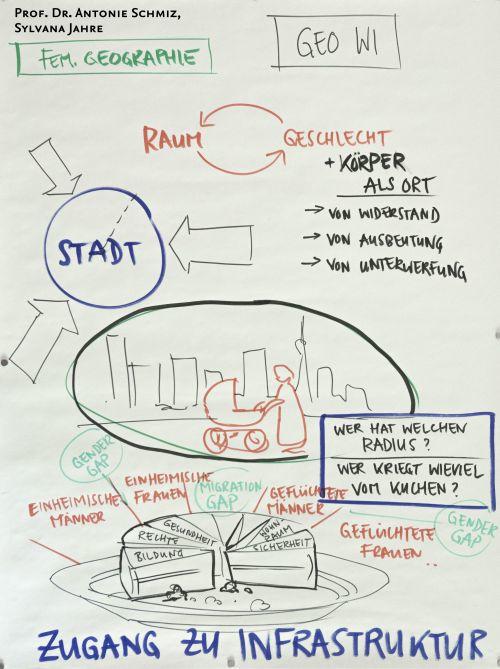 Prof. Dr. Antonie Schmiz,
Sylvana Jahre
FEM. GEOGRAPHIE
GEO WI
RAUM
GESCHLECHT
+ KÖRPER
ALS ORT
→ VON WIDERSTAND
→ VON AUSBEUTUNG
→ VON UNTERWERFUNG
STADT
WER HAT WELCHEN
RADIUS?
WER KRIEGT WIEVIEL
VOM KUCHEN?
GENDER
GAP
EINHEIMISCHE
MÄNNER
EINHEIMISCHE
FRAUEN
MIGRATION
GAP
GEFLÜCHTETE
MÄNNER
GEFLÜCHTETE
FRAUEN..
GENDER
GAP
GESUNDHEIT
RECHTE
BILDUNG
WOHN
RAUM
SICHERHEIT
ZUGANG ZU INFRASTRUKTUR